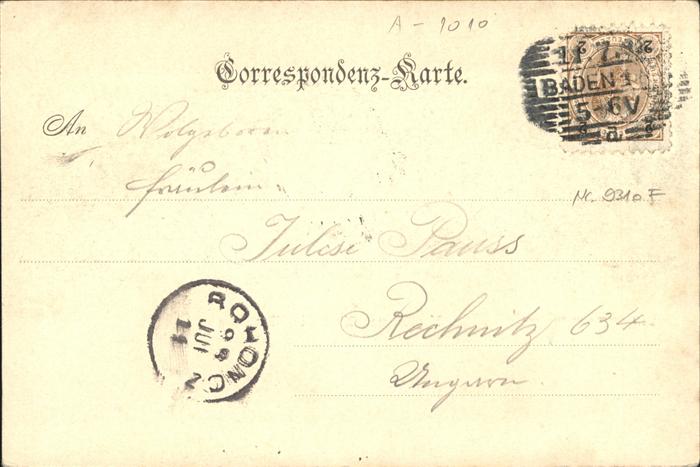 A-1010
Correspondenz-Karte.
An Wolgeboren
Fräulein
Julcse Pauss
Rechnitz 634
Ungarn
Nr. 9310 F
BADEN
5-6V
2
ROHONCZ
JUL